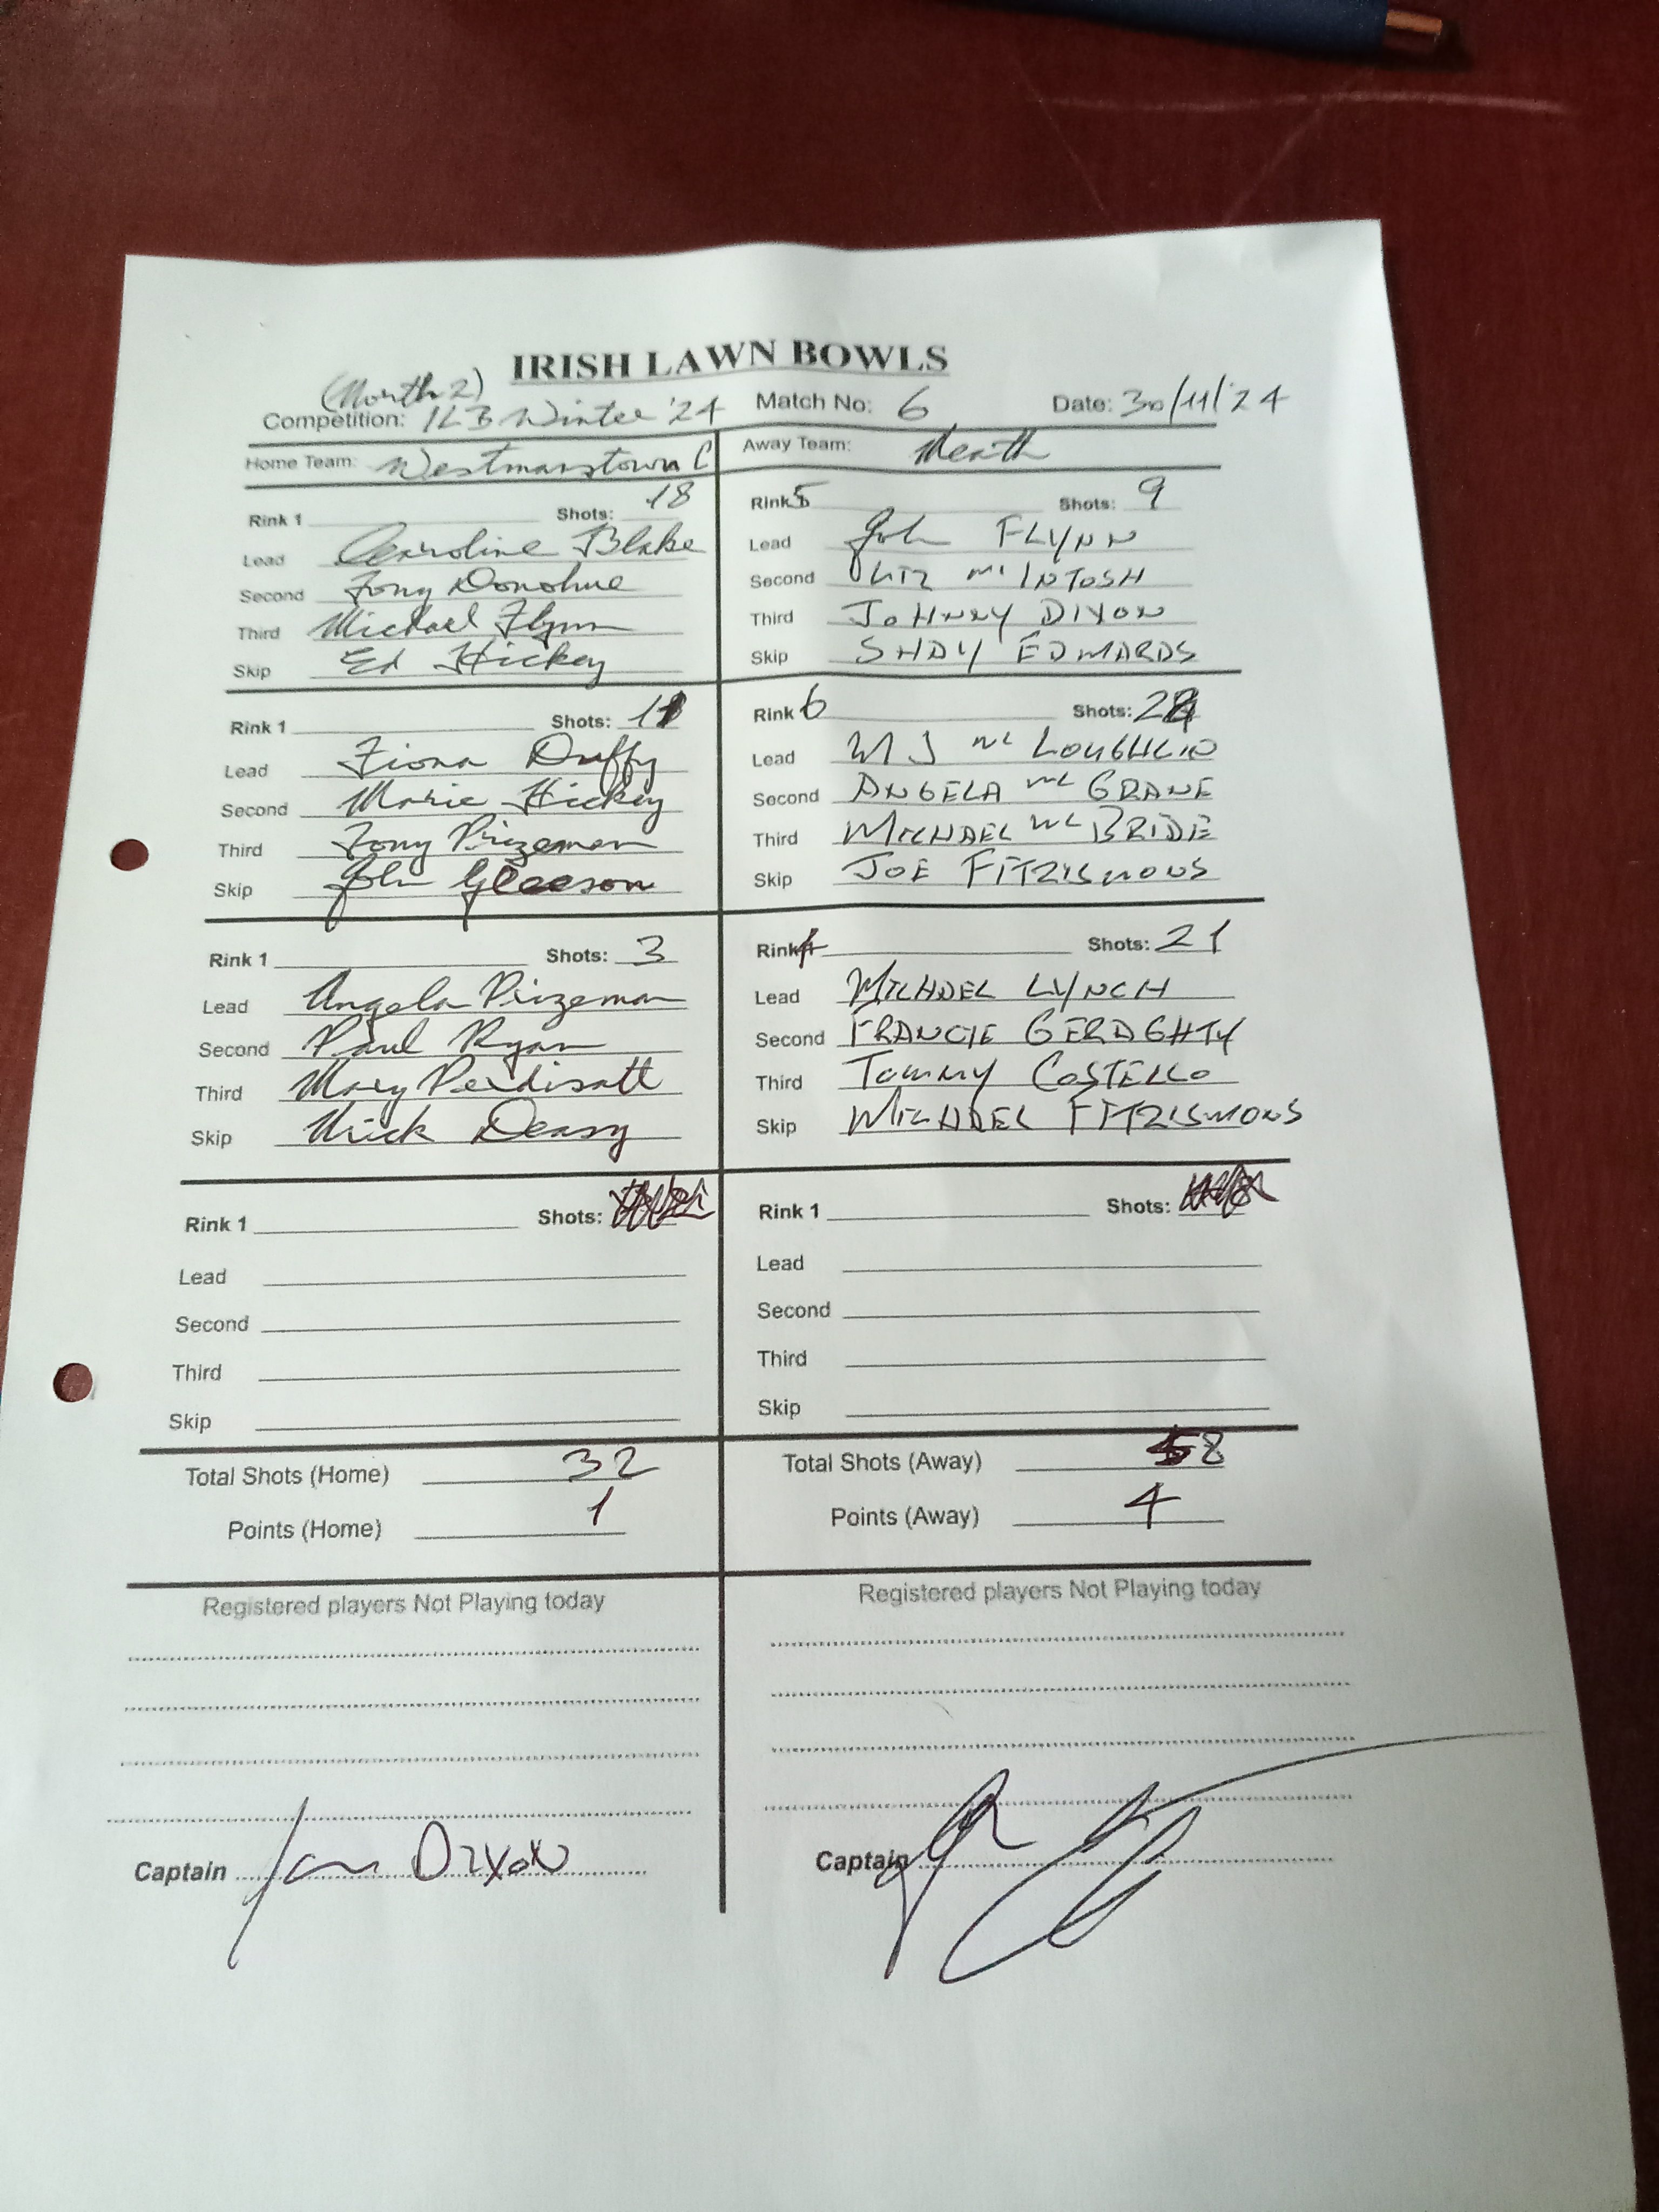 IRISH LAWN BOWLS
(Month 2)
Competition: ILB Winter '24 Match No: 6 Date: 30/11/24
Home Team: Westmanstown C Away Team: Meath
Rink 1 Shots: 18 Rink 5 Shots: 9
Lead Caroline Blake Lead John FLYNN
Second Tony Donohue Second LIZ Mc INTOSH
Third Michael Flynn Third JOHNNY DIXON
Skip Ed Hickey Skip SHAY EDWARDS
Rink 1 Shots: 11 Rink 6 Shots: 28
Lead Fiona Duffy Lead M J Mc LOUGHLIN
Second Marie Hickey Second ANGELA Mc GRANE
Third Tony Prizeman Third MICHAEL Mc BRIDE
Skip John Gleeson Skip JOE FITZISMONS
Rink 1 Shots: 3 Rink 4 Shots: 21
Lead Angela Prizeman Lead MICHAEL LYNCH
Second Paul Ryan Second FRANCIE GERAGHTY
Third Mary Third TOMMY COSTELLO
Skip Mick Deasy Skip MICHAEL FITZISMONS
Rink 1 Shots: Rink 1 Shots:
Lead Lead
Second Second
Third Third
Skip Skip
Total Shots (Home) 32 Total Shots (Away) 58
Points (Home) 1 Points (Away) 4
Registered players Not Playing today Registered players Not Playing today
Captain Dixon Captain